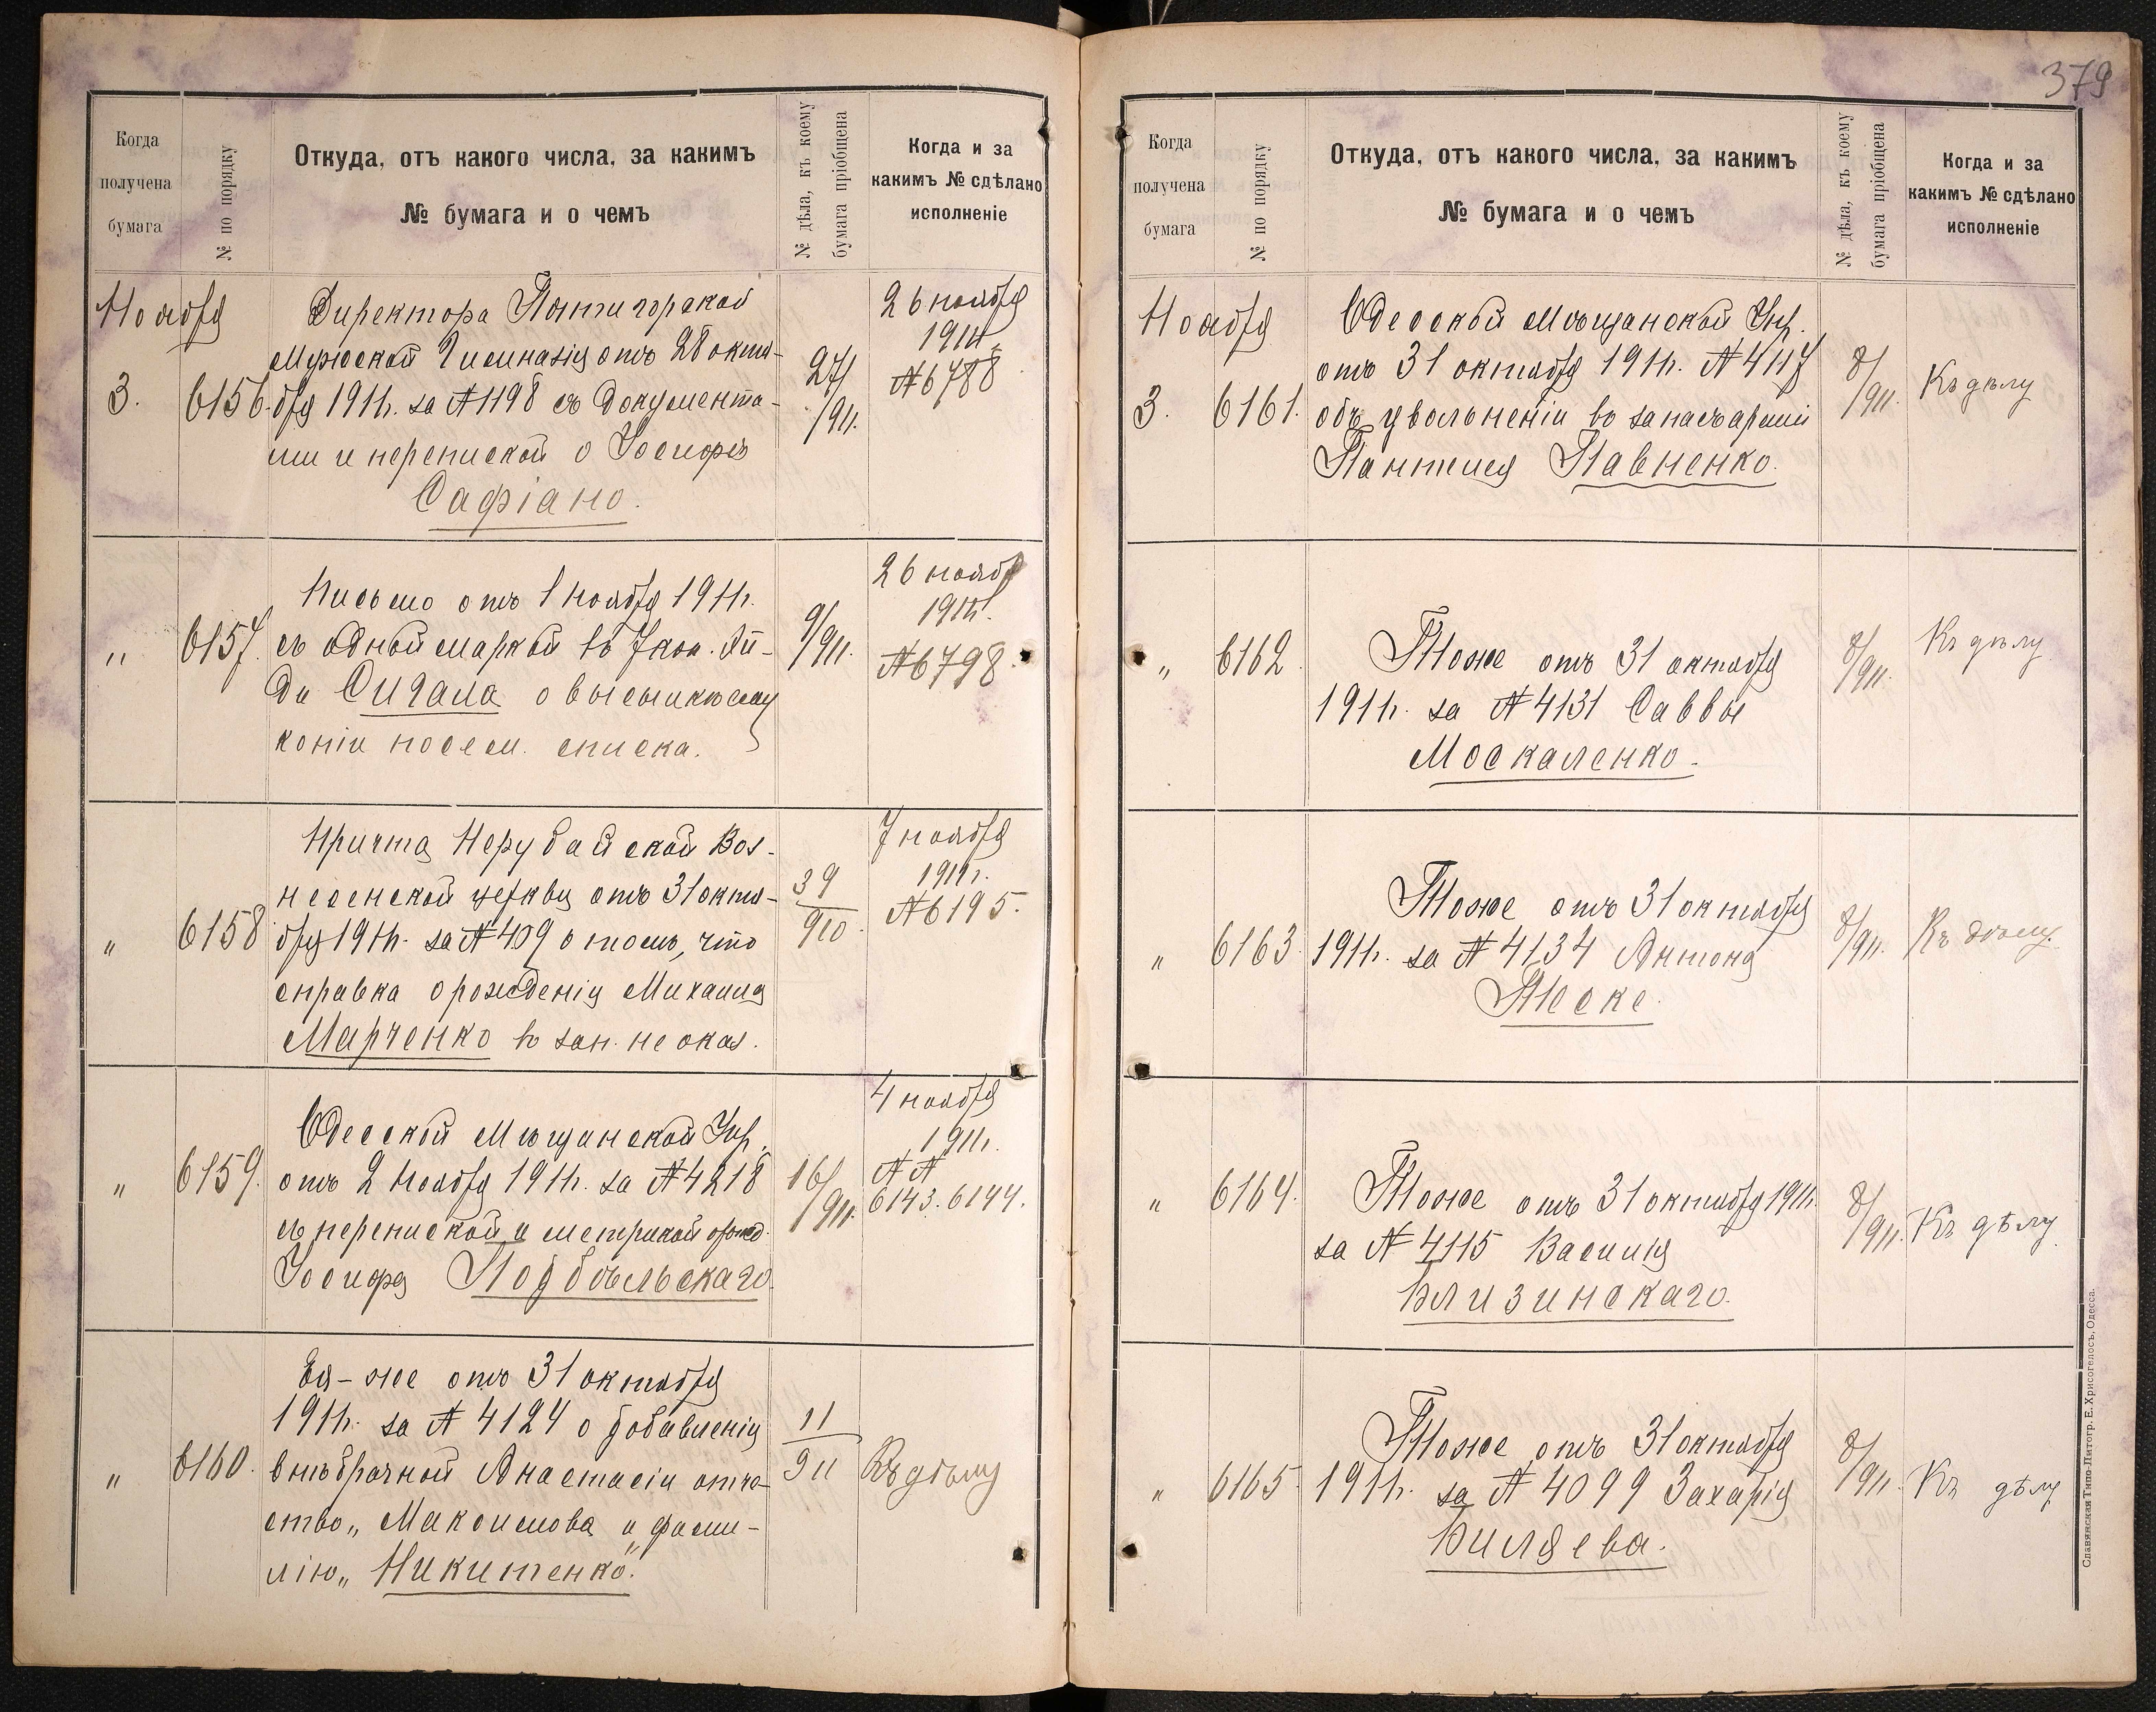 Когда
получена
бумага
№ по порядку
Откуда, отъ какого числа, за какимъ
№ бумага и о чемъ
№ дѣла, къ коему
бумага пріобщена
Когда и за
какимъ № сдѣлано
исполненіе
Ноября
3.
6156.
Директора Пятигорской
Мужской Гимназіи отъ 28 октя-
бря 1911г. за №1198 съ документа-
ми и перепиской о Іосифѣ
Сафіано.
27/
/911.
26 ноября
1911г.
№6788
"
6157.
Письмо отъ 1 Ноября 1911г.
съ одной маркой въ 7 коп.
Сигала о высылкѣ ему
копіи посем. списка.
9/911.
26 ноябр
1911г.
№6798.
"
6158
Причта Нерубайской Воз-
несенской церкви отъ 31 октя-
бря 1911г. за №409 о томъ, что
справка о рожденіи Михаила
Марченко въ зап. не оказ.
39
910.
7 ноября
1911г.
№6195.
"
6159.
Одесской Мѣщанской Упр.
отъ 2 Ноября 1911г. за №4218
съ перепиской и метрикой о рожд.
Іосифа Подбѣльскаго.
16/
/911.
4 ноября
1911г.
№№
6143. 6144.
"
6160.
Ея-же отъ 31 октября
1911г. за № 4124 о добавленіи
внѣбрачной Анастасіи отче-
ство „Максимова" и фами-
лію „Никитенко".
11
911
Къ дѣлу
379
Когда
получена
бумага
№ по порядку
Откуда, отъ какого числа, за какимъ
№ бумага и о чемъ
№ дѣла, къ коему
бумага пріобщена
Когда и за
какимъ № сдѣлано
исполненіе
Ноября
3.
6161.
Одесской Мѣщанской Упр.
отъ 31 октября 1911г. №4117
объ увольненіи въ запасъ арміи
Пантелея Павненко.
8/
/911.
Къ дѣлу
"
6162.
Тоже отъ 31 октября
1911г. за №4131 Саввы
Москаленко.
8/
/911.
Къ дѣлу
"
6163.
Тоже отъ 31 октября
1911г. за №4134 Антона
Теске.
8/911.
Къ дѣлу.
"
6164.
Тоже отъ 31 октября 1911г.
за № 4115 Василія
Близинскаго.
8/
/911.
Къ дѣлу
"
6165.
Тоже отъ 31 октября
1911г. за № 4099 Захарія
Биляева.
8/
/911.
Къ дѣлу
Славянская Типо-Литогр. Е. Хрисогелосъ, Одесса.